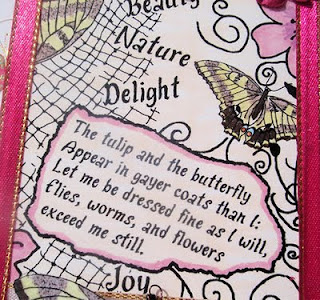 Beauty
Nature
Delight
The tulip and the butterfly
Appear in gayer coats than I:
Let me be dressed fine as I will,
flies, worms, and flowers
exceed me still.
Joy